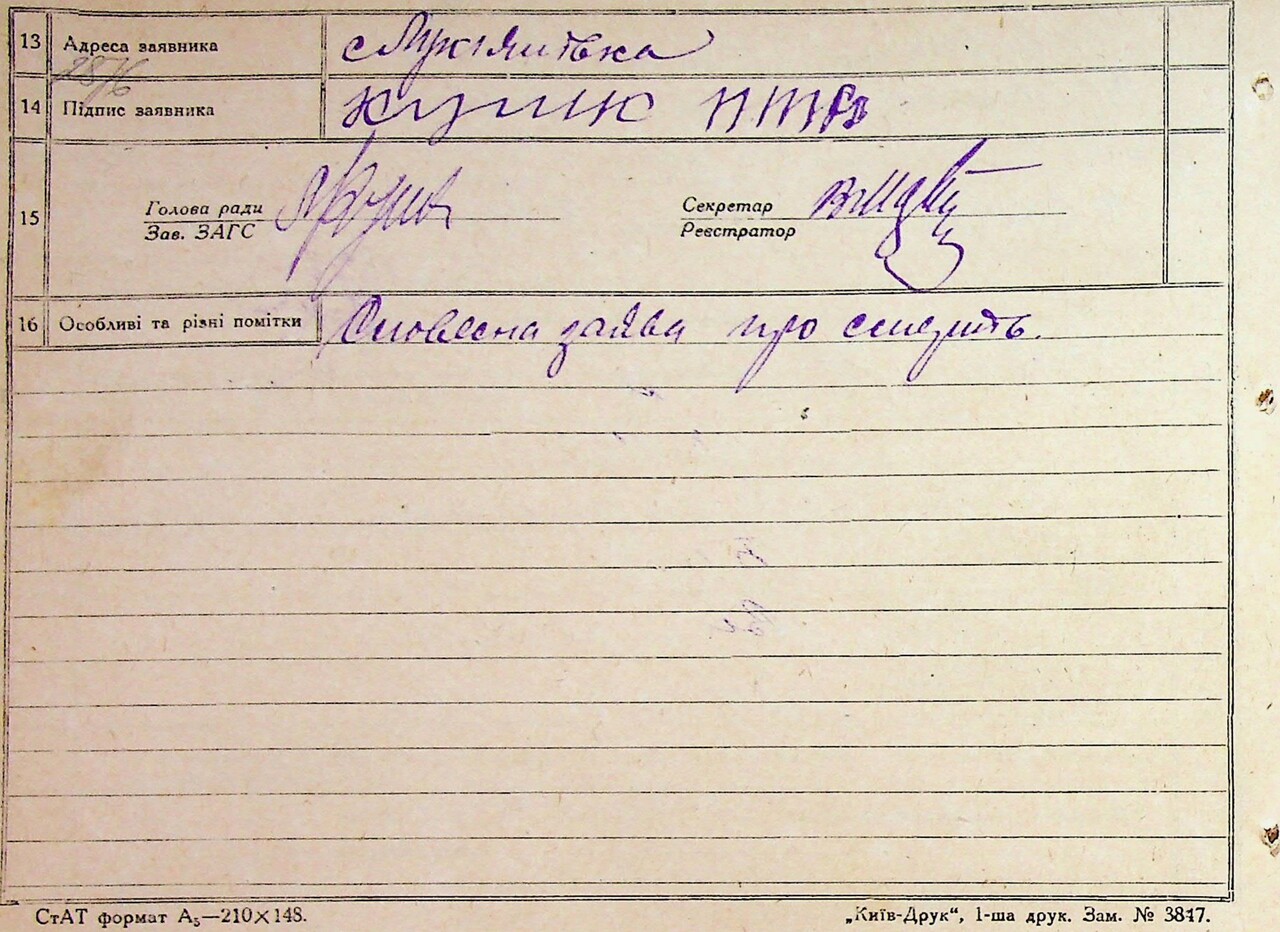 13 Адреса заявника с Лукянівка
2876
14 Підпис заявника Кулик ПТР
15 Голова ради Секретар
Зав. ЗАГС Реєстратор
16 Особливі та різні помітки Словесна заява про смерть.
СтАТ формат А₅—210×148. „Київ-Друк“, 1-ша друк. Зам. № 3847.